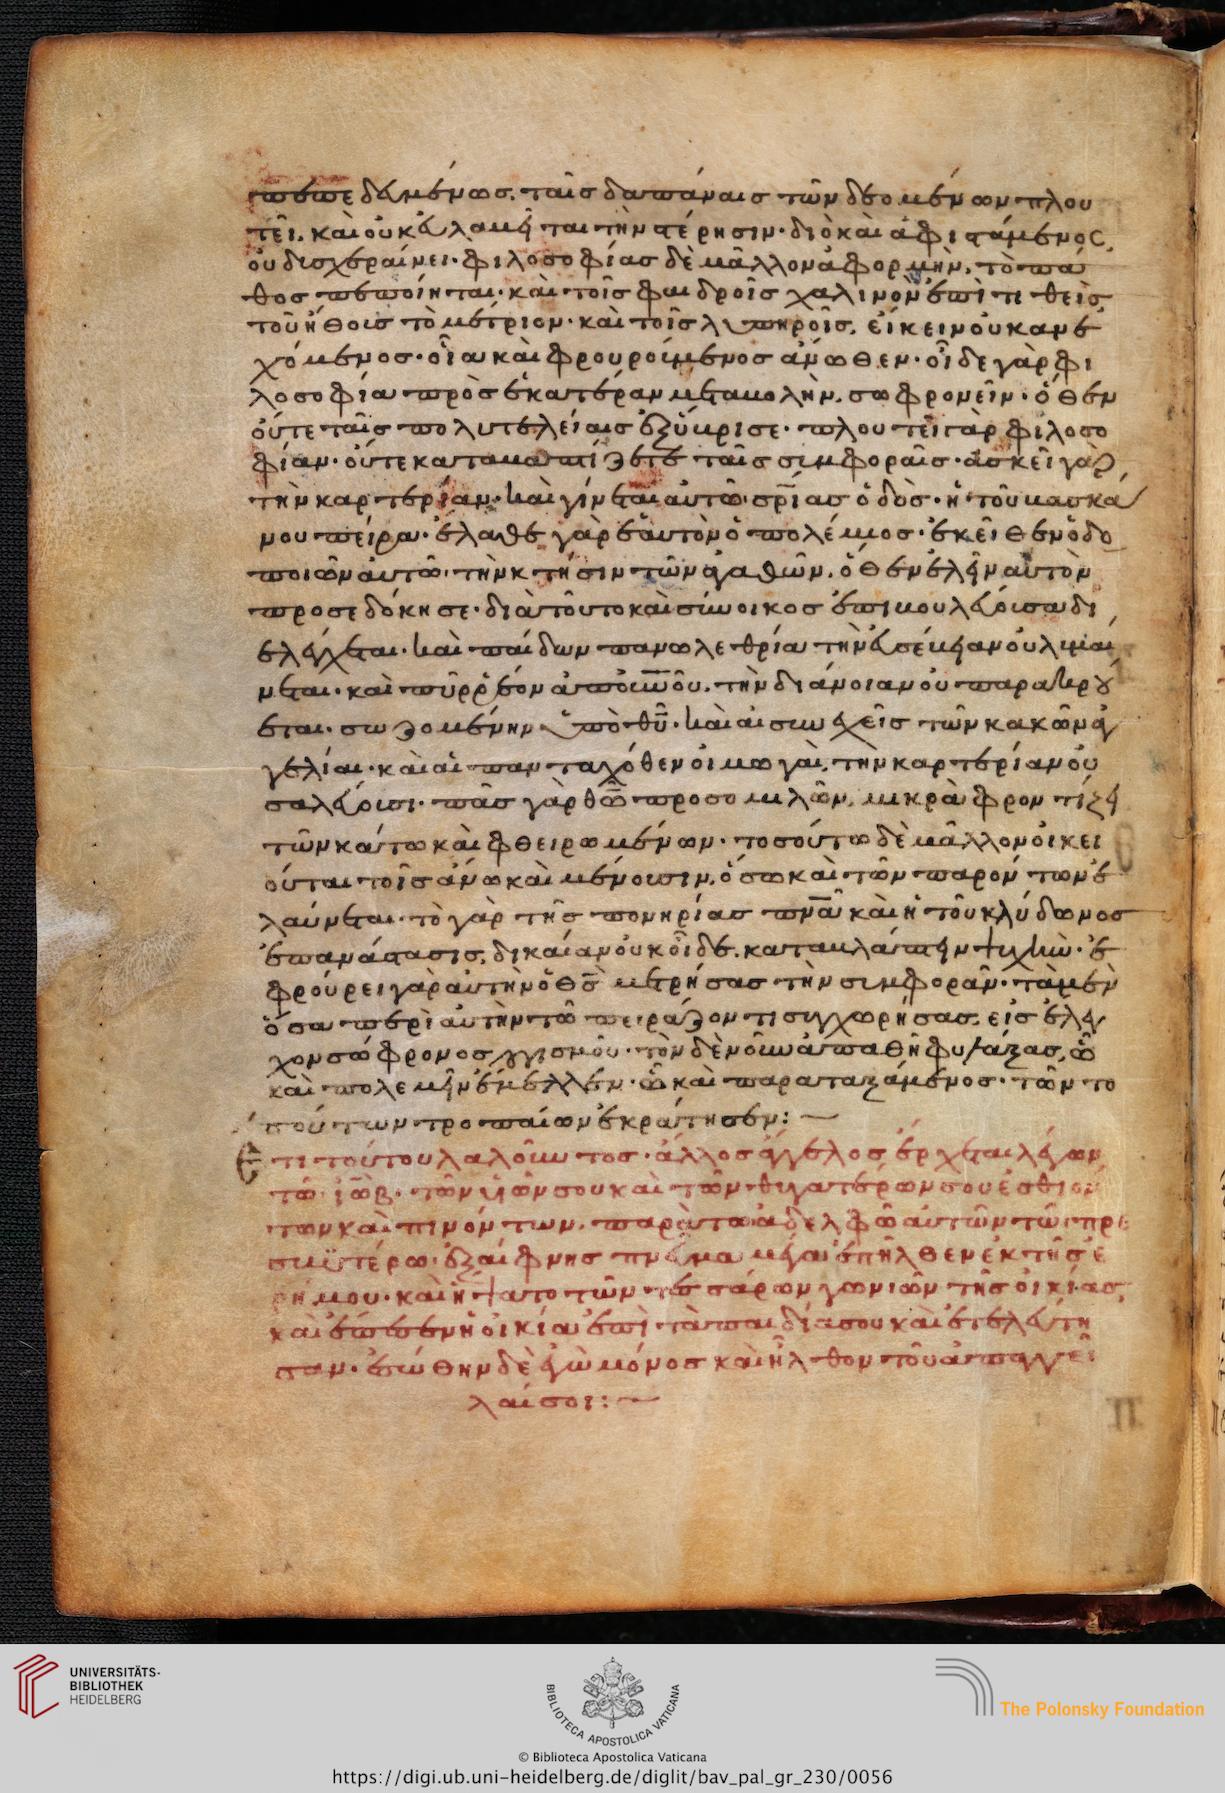 πεπεδημένως. ταῖς δαπάναις τῶν δεομένων πλου
τεῖ. καὶ οὐ καλαμᾶται τὴν στέρησιν· διὸ καὶ ἀφιστάμενος
οὐ δισχεραίνει· φιλοσοφίας δὲ μᾶλλον ἀφορμὴν, τὸ πά
θος πεποίηται· καὶ τοῖς φαιδροῖς χαλινὸν ἐπιτιθεὶς
τοῦ ἤθους τὸ μέτριον· καὶ τοῖς λυπηροῖς, εἴκειν οὐκ ἀνε
χόμενος· οἷα καὶ φρουροίμενος ἄνωθεν· οἶδε γὰρ φι
λοσοφία πρὸς ἑκατέραν μεταβολὴν, σωφρονεῖν· ὅθεν
οὔτε ταῖς πολυτελείαις ἐξύβρισε· πλουτεῖ γὰρ φιλοσο
φίαν· οὔτε καταβαπτίζεται ταῖς συμφοραῖς· ἀσκεῖ γὰρ
τὴν καρτερίαν· καὶ γίνεται αὐτῶ σρίας ὁδὸς· ἡ τοῦ βασκά
νου πεῖρα· ἔλαθε γὰρ ἑαυτὸν ὁ πολέμιος· ἐκεῖθεν ὁδο
ποιῶν αὐτῶ τὴν κτῆσιν τῶν ἀγαθῶν, ὅθεν ἑλεῖν αὐτὸν
προσεδόκησε· διὰ τοῦτο καὶ σύνοικος ἐπιβουλεύουσα δι
ελέγχεται· καὶ παίδων πανωλεθρία τὴν εὐσέβειαν οὐ λυμαί
νεται· καὶ πῦρ ῥέον ἀπ' οὐνοῦ, τὴν διάνοιαν οὐ παρακρού
εται. σωζομένην ὑπὸ θυ· καὶ αἱ συνεχεῖς τῶν κακῶν ἀγ
γελίαι· καὶ αἱ πανταχόθεν οἰμωγαὶ, τὴν καρτερίαν οὐ
σαλεύουσι· πᾶς γὰρ θω προσομιλῶν, μικρὰ φροντίζει
τῶν κάτω καὶ φθειρωμένων· τοσούτω δὲ μᾶλλον οἰκει
οῦται τοῖς ἄνω καὶ μένουσιν, ὅσω καὶ τῶν παρόντων ἐ
λαύνεται· τὸ γὰρ τῆς πονηρίας πνα καὶ ἡ τοῦ κλύδωνος
ἐπανάστασις, δικαίαν οὐκ οἶδε, καταβλάπτειν ψυχὴν· ἐ
φρούρει γὰρ αὐτὴν ὁ θς μετρήσας τὴν συμφορᾶν· τὰ μὲν
ὅσα περὶ αὐτὴν τῶ πειράζοντι συγχωρήσας, εἰς ἔλεγ
χον σώφρονος λογισμοῦ· τὸν δὲ νοῦν ἀπαθῆ φυλάξας, ὧ
καὶ πολεμεῖν ἔμελλεν· ὧ καὶ παραταξάμενος· τῶν το
πούτων τροπαίων ἐκράτησεν:
Ετι τούτου λαλοῦντος· ἄλλος ἄγγελος ἔρχεται λέγων
τῶ ἰώβ· τῶν υἱῶν σου καὶ τῶν θυγατέρων σου ἐσθιόν
των καὶ πινόντων, παρὰ τῶ ἀδελφῶ αὐτῶν τῶ πρε
σβυτέρω· ἐξαίφνης πνεῦμα μέγα ἐπῆλθεν ἐκ τῆς ἐ
ρήμου· καὶ ἥψατο τῶν τεσσάρων γωνιῶν τῆς οἰκίας,
καὶ ἔπεσεν ἡ οἰκία ἐπὶ τὰ παιδία σου καὶ ἐτελεύτη
σαν· ἐσώθην δὲ ἐγὼ μόνος καὶ ἦλθον τοῦ ἀπαγγεῖ
λαί σοι:
UNIVERSITÄTS-
BIBLIOTHEK
HEIDELBERG
BIBLIOTECA APOSTOLICA VATICANA
The Polonsky Foundation
© Biblioteca Apostolica Vaticana
https://digi.ub.uni-heidelberg.de/diglit/bav_pal_gr_230/0056